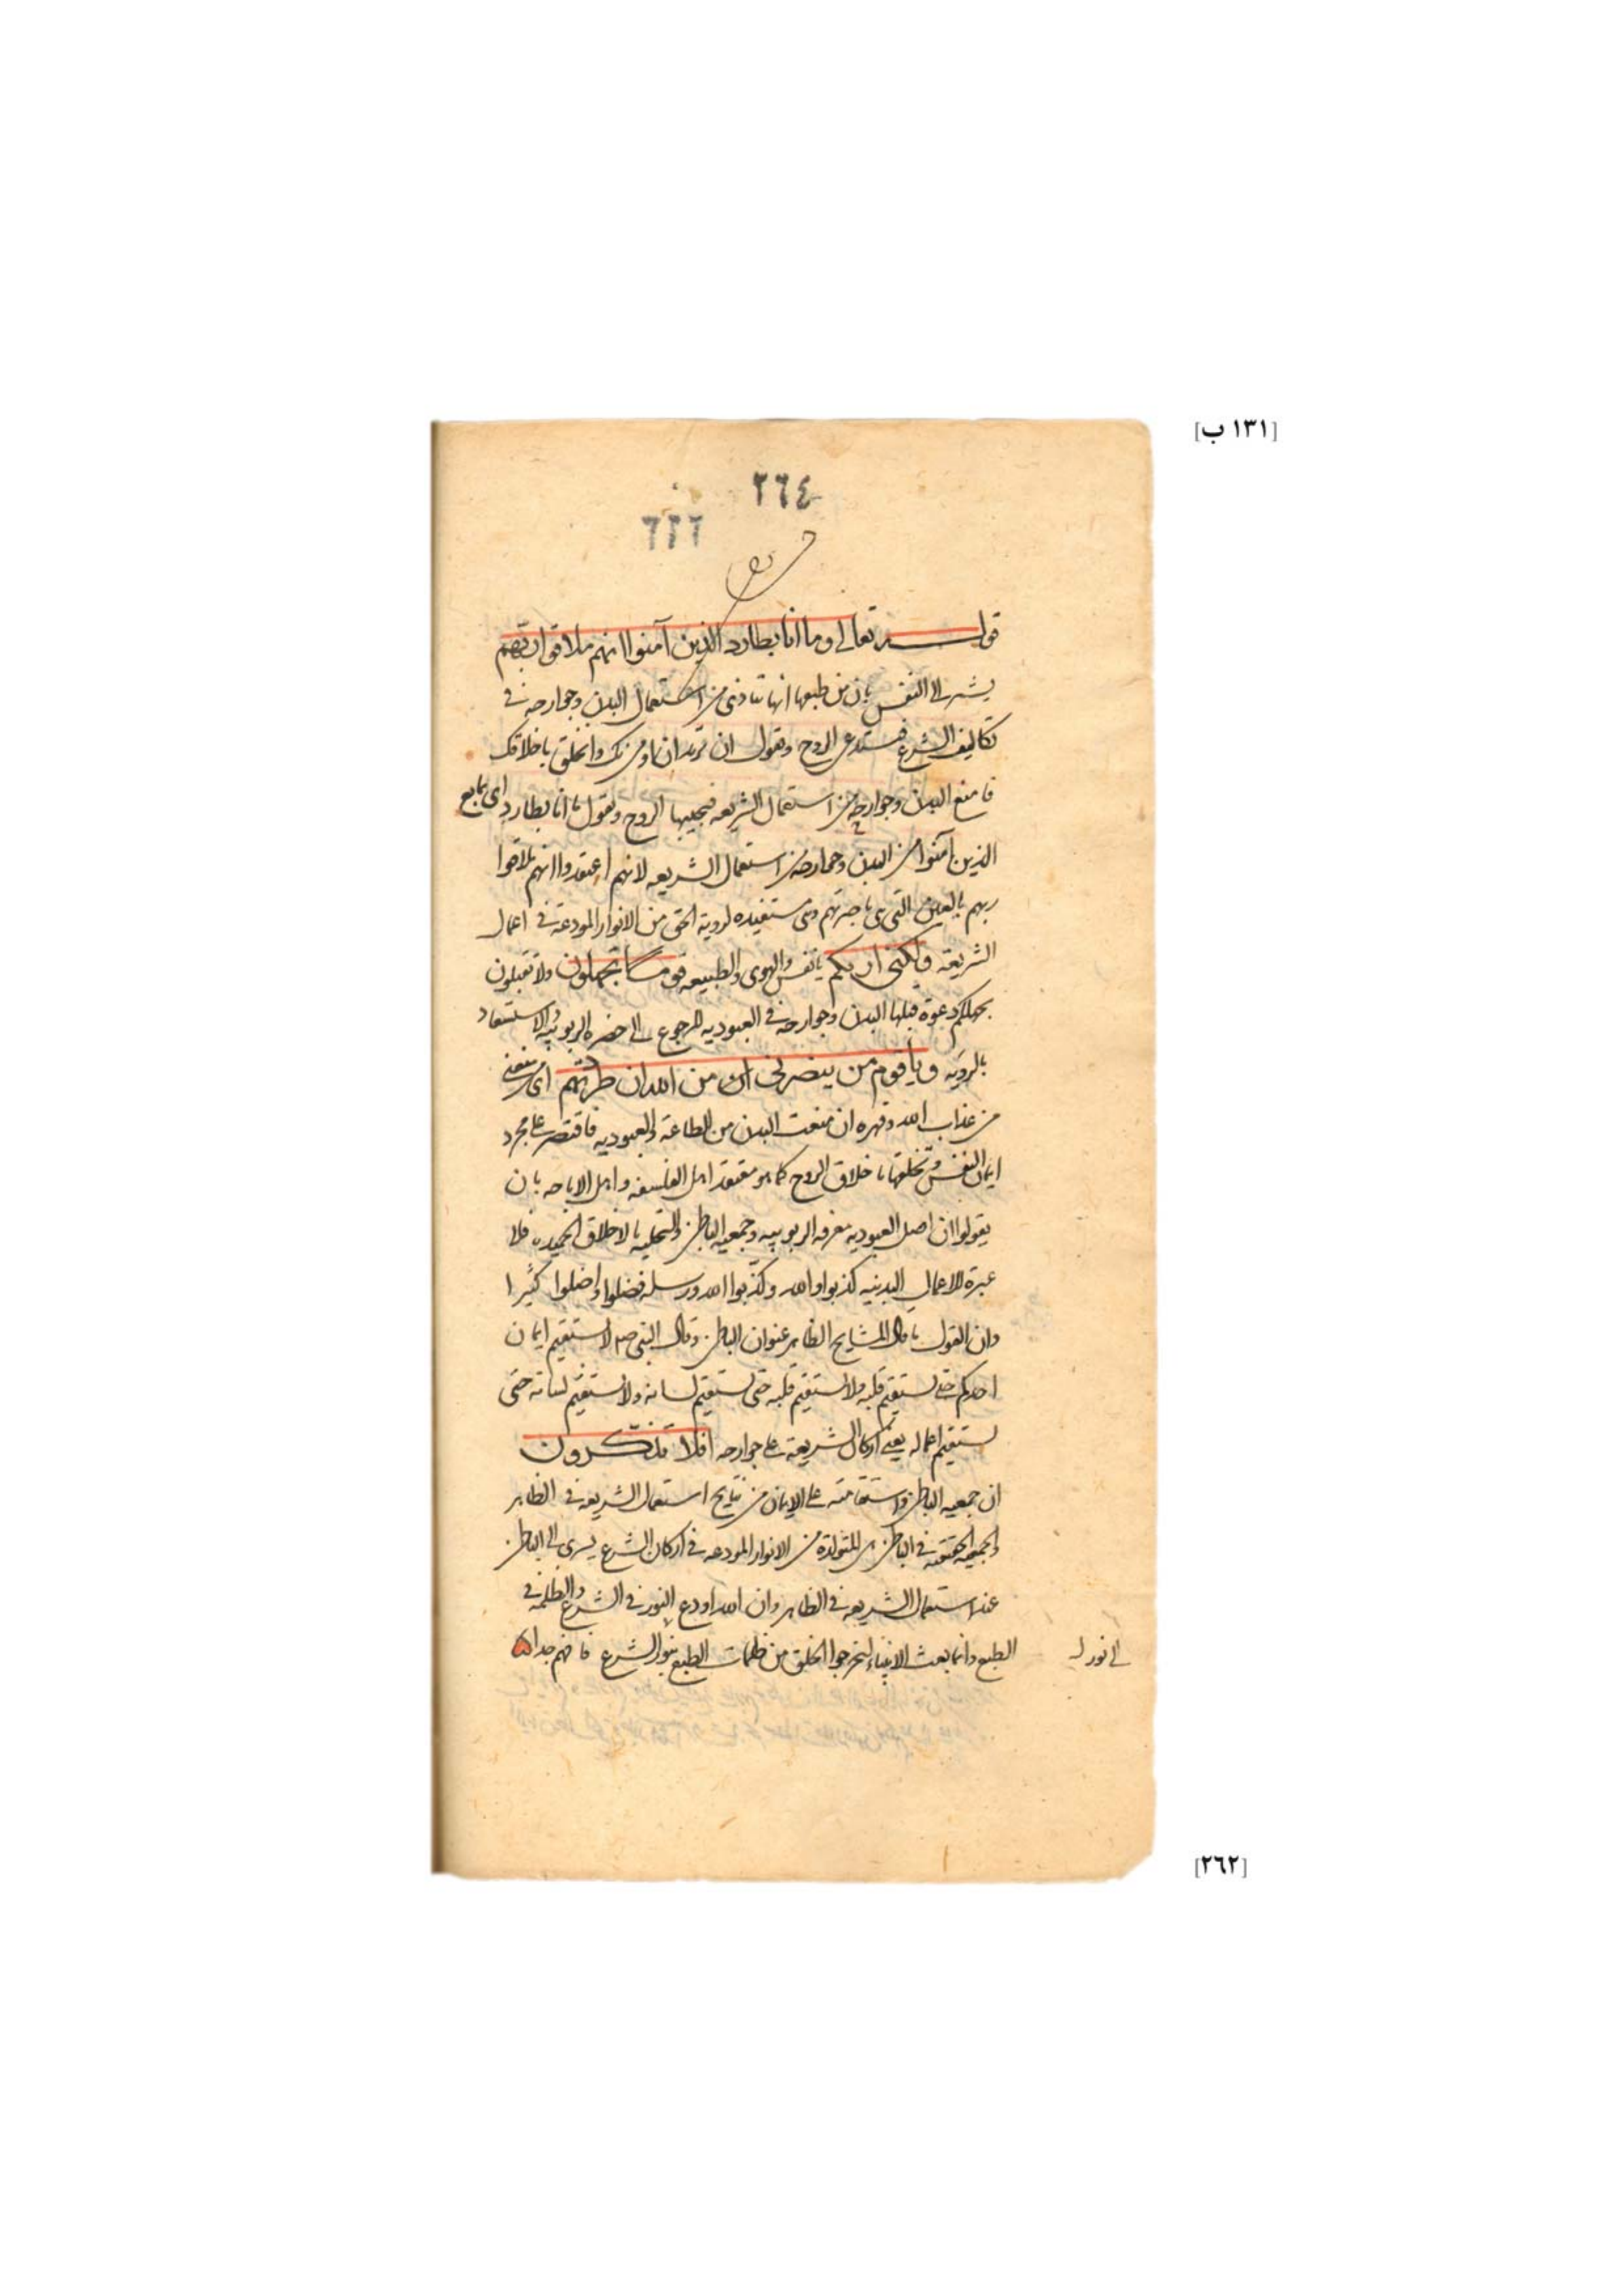 [١٣١ ب]
٢٦٤
٢٦٢
قوله تعالى وما انا بطارد الذين آمنوا انهم ملاقوا ربهم
يشير الى النفس بان من طبعها انها تتاذى من استعمال البدن وجوارحه في
تكاليف الشرع فتستدعى الروح وتقول ان ترد ان اومن بك واتخلق باخلاقك
فامنع البدن وجوارحه من استعمال الشريعه فيجيبها الروح ويقول ما انا بطارد اى بمانع
الذين آمنوا من البدن وجوارحه من استعمال الشريعه لانهم اعتقدوا انهم ملاقوا
ربهم بالعين التى هى ناصرتهم وهى مستفيده لروية الحق من الانوار المودعة في اعمال
الشريعة ولكنى اريكم يا نفس والهوى والطبيعه قوما تجهلون ولا تقبلون
بجهلكم دعوة قبلها البدن وجوارحه في العبوديه للرجوع الى حضره الربوبيه والاستسعاد
بالرؤيه ويا قوم من ينصرنى من الله ان طردتهم اى من يمنعنى
من عذاب الله وقهره ان منعت البدن من الطاعة والعبوديه فاقتصر على مجرد
ايمان النفس وتخلقها باخلاق الروح كما هو معتقد اهل الفلسفه واهل الاباحه بان
يقولوا ان اصل العبوديه معرفه الربوبيه وجمعيه الباطن والتحليه بالاخلاق الحميده فلا
عبرة للاعمال البدنيه كذبوا والله وكذّبوا الله ورسله فضلوا واضلوا كثيرا
وان القول ما قال المشايخ الظاهر عنوان الباطن وقال النبى صلم لا يستقيم ايمان
احدكم حتى يستقيم قلبه ولا يستقيم قلبه حتى يستقيم لسانه ولا يستقيم لسانه حتى
يستقيم اعماله يعنى اركان الشريعة على جوارحه افلا تذكرون
ان جمعيه الباطن واستقامته على الايمان من نتايج استعمال الشريعه في الظاهر
والجمعيه الحقيقيه في الباطن هى المتولدة من الانوار المودعه في اركان الشرع يسرى الى الباطن
عند استعمال الشريعه في الظاهر وان الله اودع النور في الشرع والظلمه في
الطبع وانما بعث الانبياء ليخرجوا الخلق من ظلمات الطبع بنور الشرع فافهم جدا
الى نور
[٢٦٢]